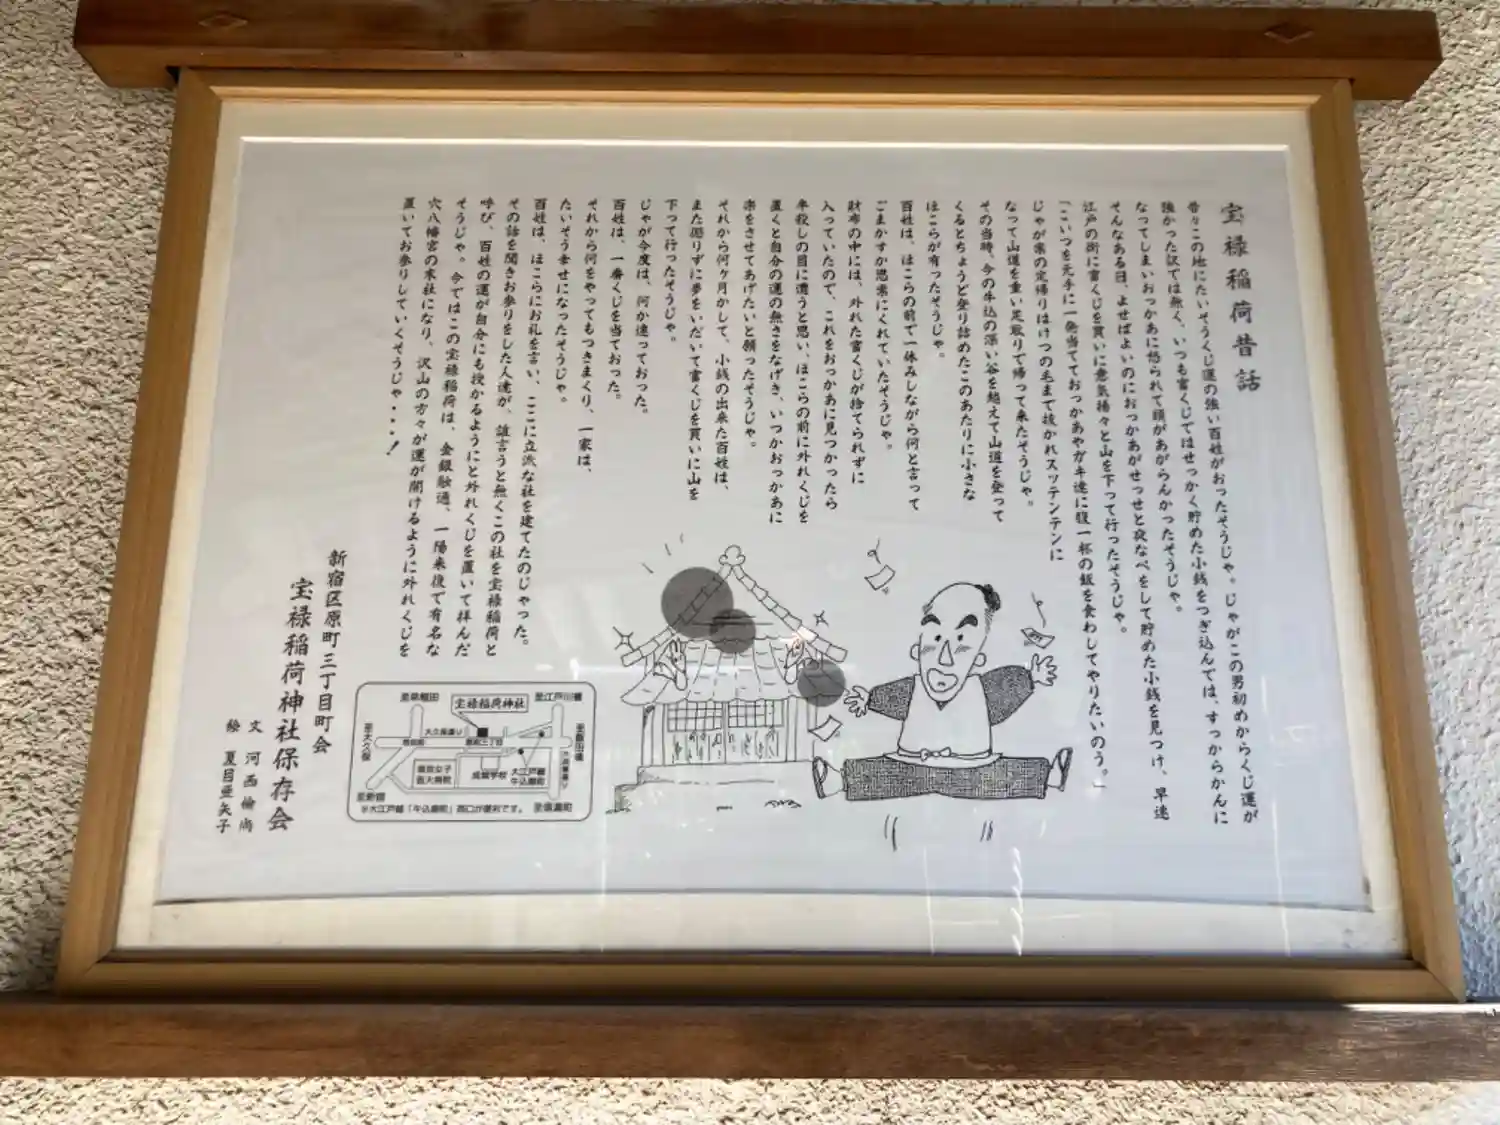 宝禄稲荷昔話
昔々この地にたいそうくじ運の強い百姓がおったそうじゃ。じゃがこの男初めからくじ運が
強かった訳では無く、いつも富くじではせっかく貯めた小銭をつぎ込んでは、すっからかんに
なってしまいおっかあに怒られて頭があがらんかったそうじゃ。
そんなある日、よせばよいのにおっかあがせっせと夜なべをして貯めた小銭を見つけ、早速
江戸の街に富くじを買いに意気揚々と山を下って行ったそうじゃ。
「こいつを元手に一発当てておっかあやガキ達に腹一杯の飯を食わしてやりたいのう。」
じゃが案の定帰りはけつの毛まで抜かれスッテンテンに
なって山道を重い足取りで帰って来たそうじゃ。
その当時、今の牛込の深い谷を越えて山道を登って
くるとちょうど登り詰めたこのあたりに小さな
ほこらが有ったそうじゃ。
百姓は、ほこらの前で一休みしながら何と言って
ごまかすか思案にくれていたそうじゃ。
財布の中には、外れた富くじが捨てられずに
入っていたので、これをおっかあに見つかったら
半殺しの目に遭うと思い、ほこらの前に外れくじを
置くと自分の運の無さをなげき、いつかおっかあに
楽をさせてあげたいと願ったそうじゃ。
それから何ヶ月かして、小銭の出来た百姓は、
また懲りずに夢をいだいて富くじを買いに山を
下って行ったそうじゃ。
じゃが今度は、何か違っておった。
百姓は、一番くじを当ておった。
それから何をやってもつきまくり、一家は、
たいそう幸せになったそうじゃ。
百姓は、ほこらにお礼を言い、ここに立派な社を建てたのじゃった。
その話を聞きお参りをした人達が、誰言うと無くこの社を宝禄稲荷と
呼び、百姓の運が自分にも授かるようにと外れくじを置いて拝んだ
そうじゃ。今ではこの宝禄稲荷は、金銀融通、一陽来復で有名な
穴八幡宮の末社になり、沢山の方々が運が開けるように外れくじを
置いてお参りしていくそうじゃ・・・・！
新宿区原町三丁目町会
宝禄稲荷神社保存会
文 河西倫尚
絵 夏目亜矢子
至早稲田
宝禄稲荷神社
至江戸川橋
至大久保
大久保通り
原町三丁目
至飯田橋
東京女子
医大病院
成城学校
大江戸線
牛込柳町
至新宿
至市ヶ谷
※大江戸線「牛込柳町」西口が便利です。